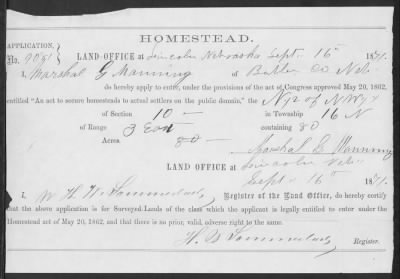 HOMESTEAD.
APPLICATION,
No. 9081
LAND OFFICE at Lincoln Nebraska Sept 16th 1871.
I, Marshal G Manning of Butler Co Neb
do hereby apply to enter, under the provisions of the act of Congress approved May 20, 1862,
entitled "An act to secure homesteads to actual settlers on the public domain," the N 1/2 of N W 1/4
of Section 10 in Township 16 N
of Range 3 East containing 80
Acres 80
Marshal G Manning
LAND OFFICE at Lincoln Neb
Sept 16th 1871.
I, Register of the Land Office, do hereby certify
that the above application is for Surveyed Lands of the class which the applicant is legally entitled to enter under the
Homestead act of May 20, 1862, and that there is no prior, valid, adverse right to the same.
Register.